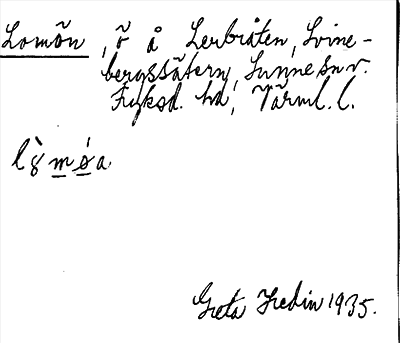 Lomön, ö å Lerbråten, Svine-
bergssätern, Sunne sn v.
Fryksd. hd, Värml. l.
lò̥møa
Greta Hedin 1935.